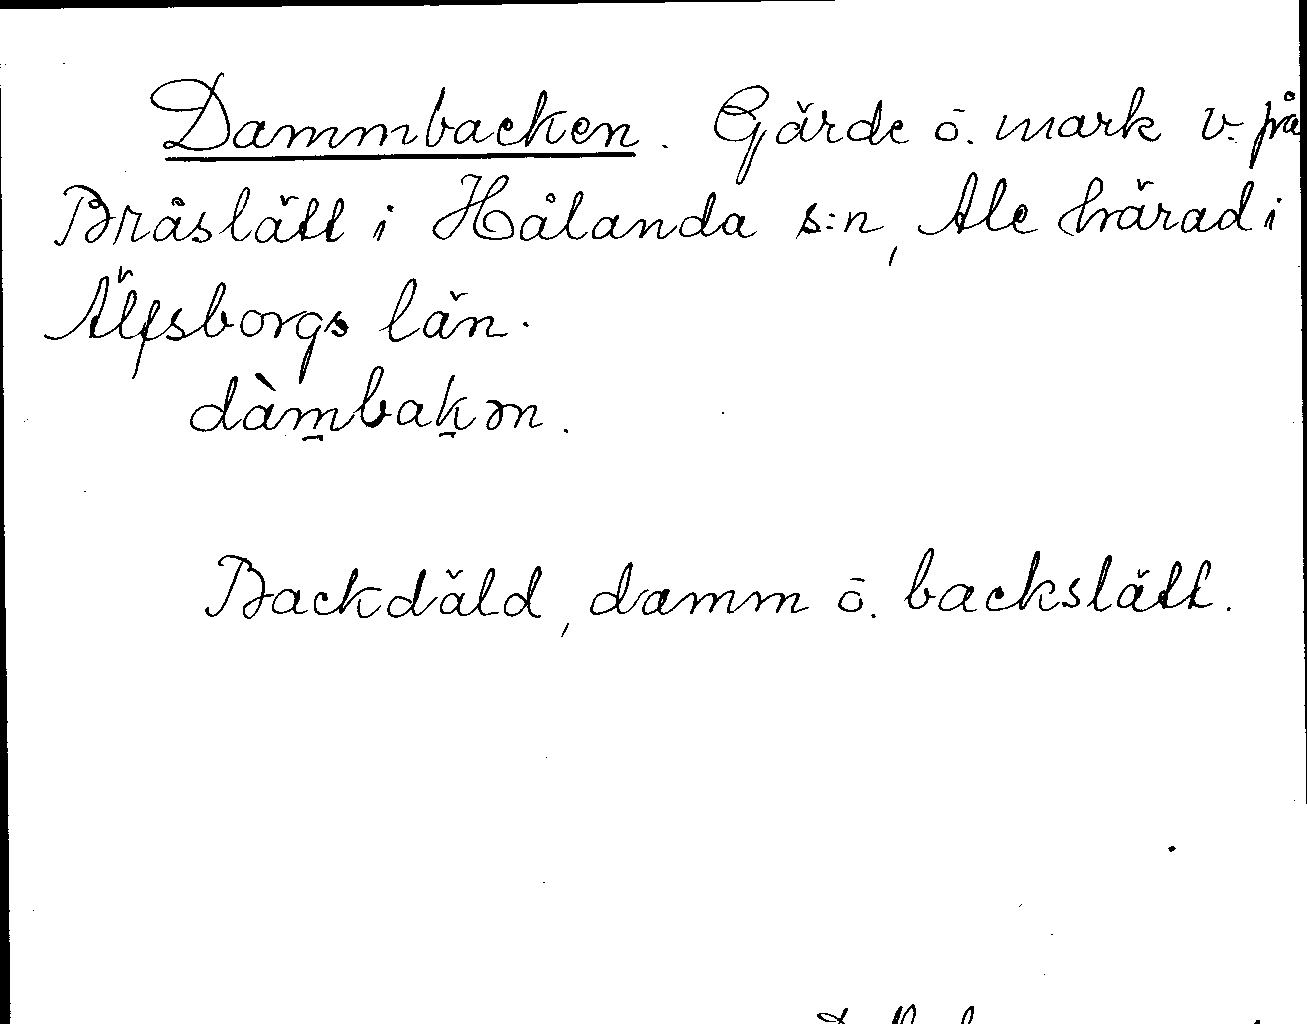 Dammbacken. Gärde ō. mark v. frå
Bråslätt i Hålanda s:n, Ale härad i
Älfsborgs län.
dàm̲bak̲ən.
Backdäld, damm ō. backslätt.